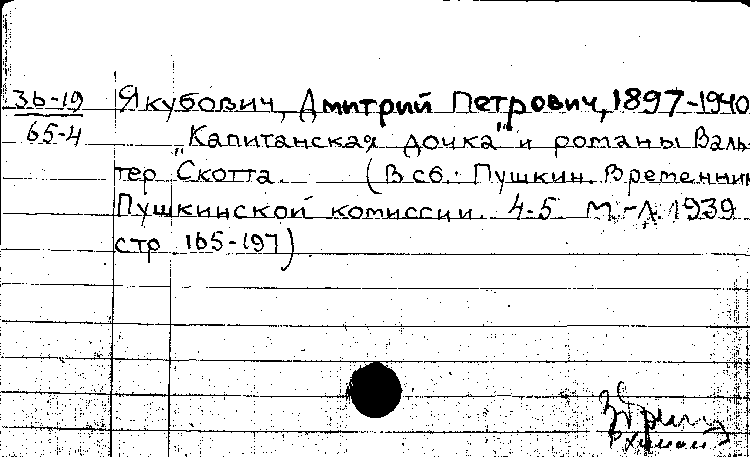 36-19 Якубович, Дмитрий Петрович, 1897-1940
65-4 „Капитанская дочка" и романы Валь-
тер Скотта. (В сб.: Пушкин. Временник
Пушкинской комиссии. 4-5 М.-Л. 1939
стр 165-197)